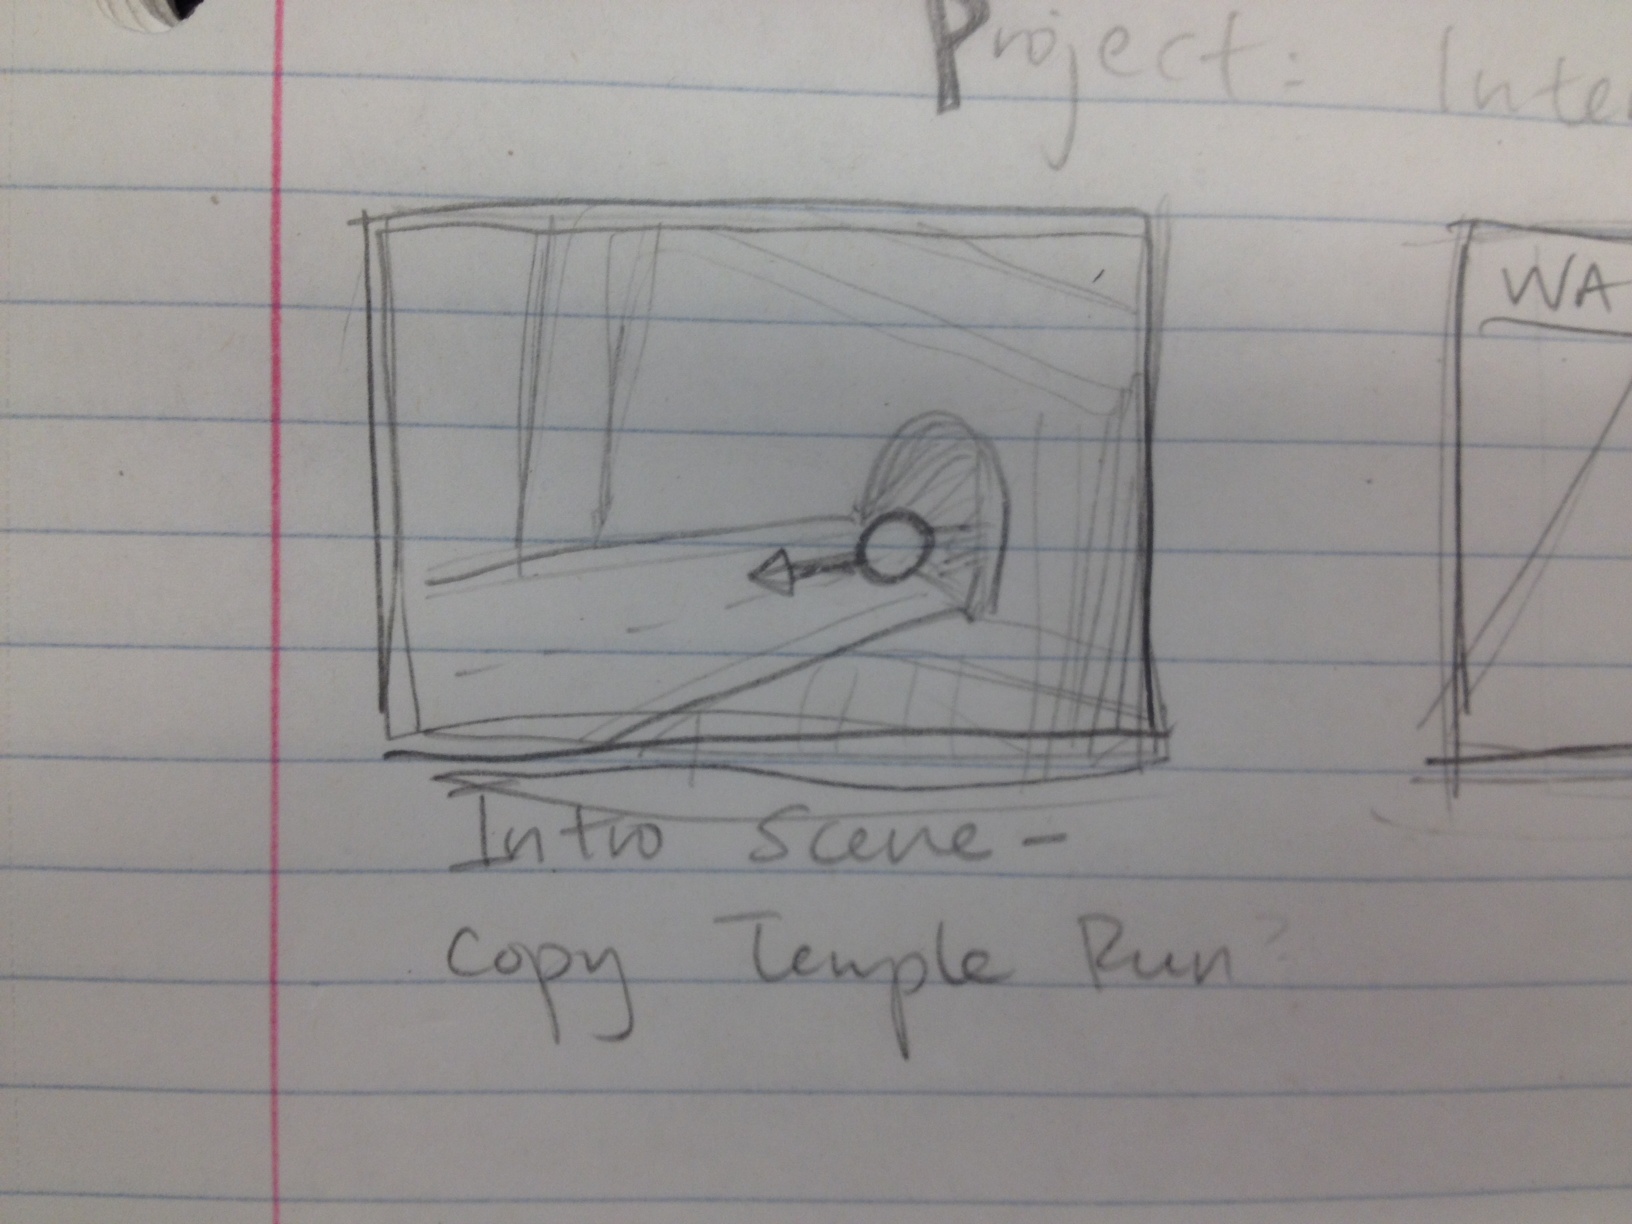 Project: Inte
WA
Intro Scene -
Copy Temple Run?